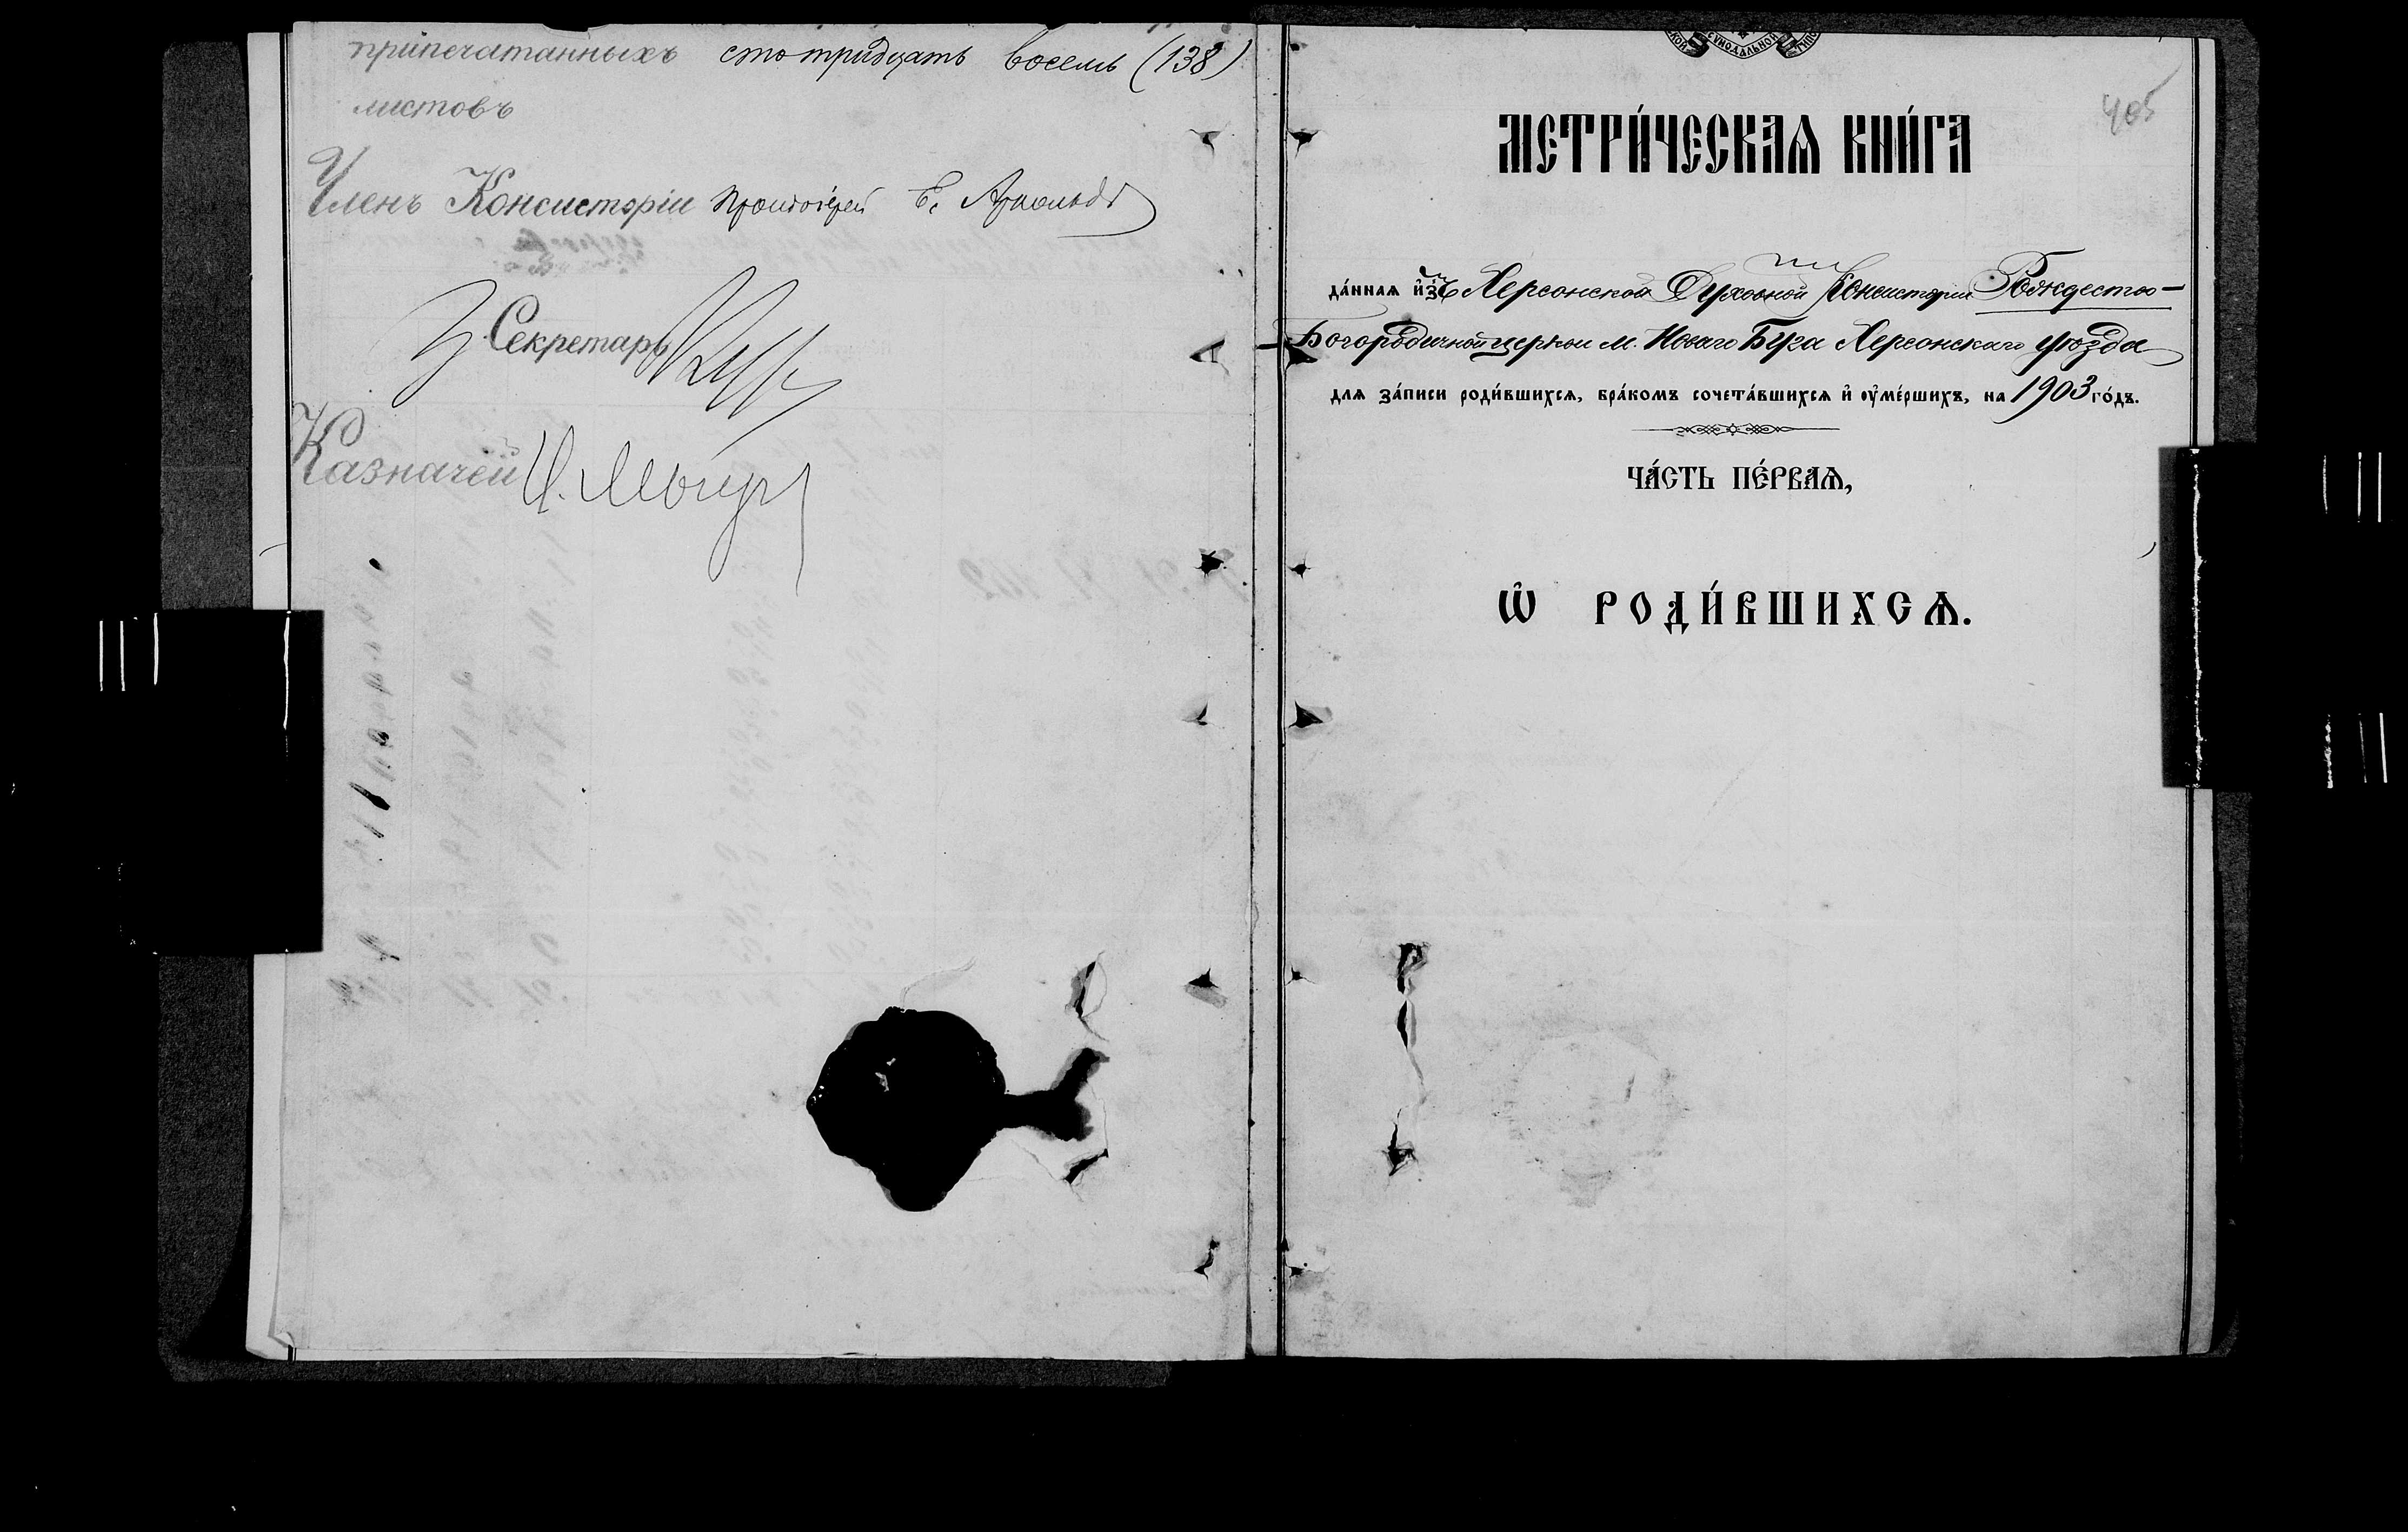 припечатанныхъ сто тридцать восемь (138)
листовъ
Членъ Консисторіи Протоіерей Е. Арнольдъ
Секретарь
Казначей
405
МЕТРИ́ЧЕСКАѦ КНИ́ГА
да́нная и҆зъ Херсонской Духовной Консисторіи Рождество-
Богородичной церкви м. Новаго Буга Херсонскаго уѣзда
для за́писи роди́вшихсѧ, бра́комъ сочета́вшихсѧ и҆ оу҆ме́ршихъ, на 1903 го́дъ.
ЧА́СТЬ ПЕ́РВАѦ,
Ѡ҆ РОДИ́ВШИХСѦ.